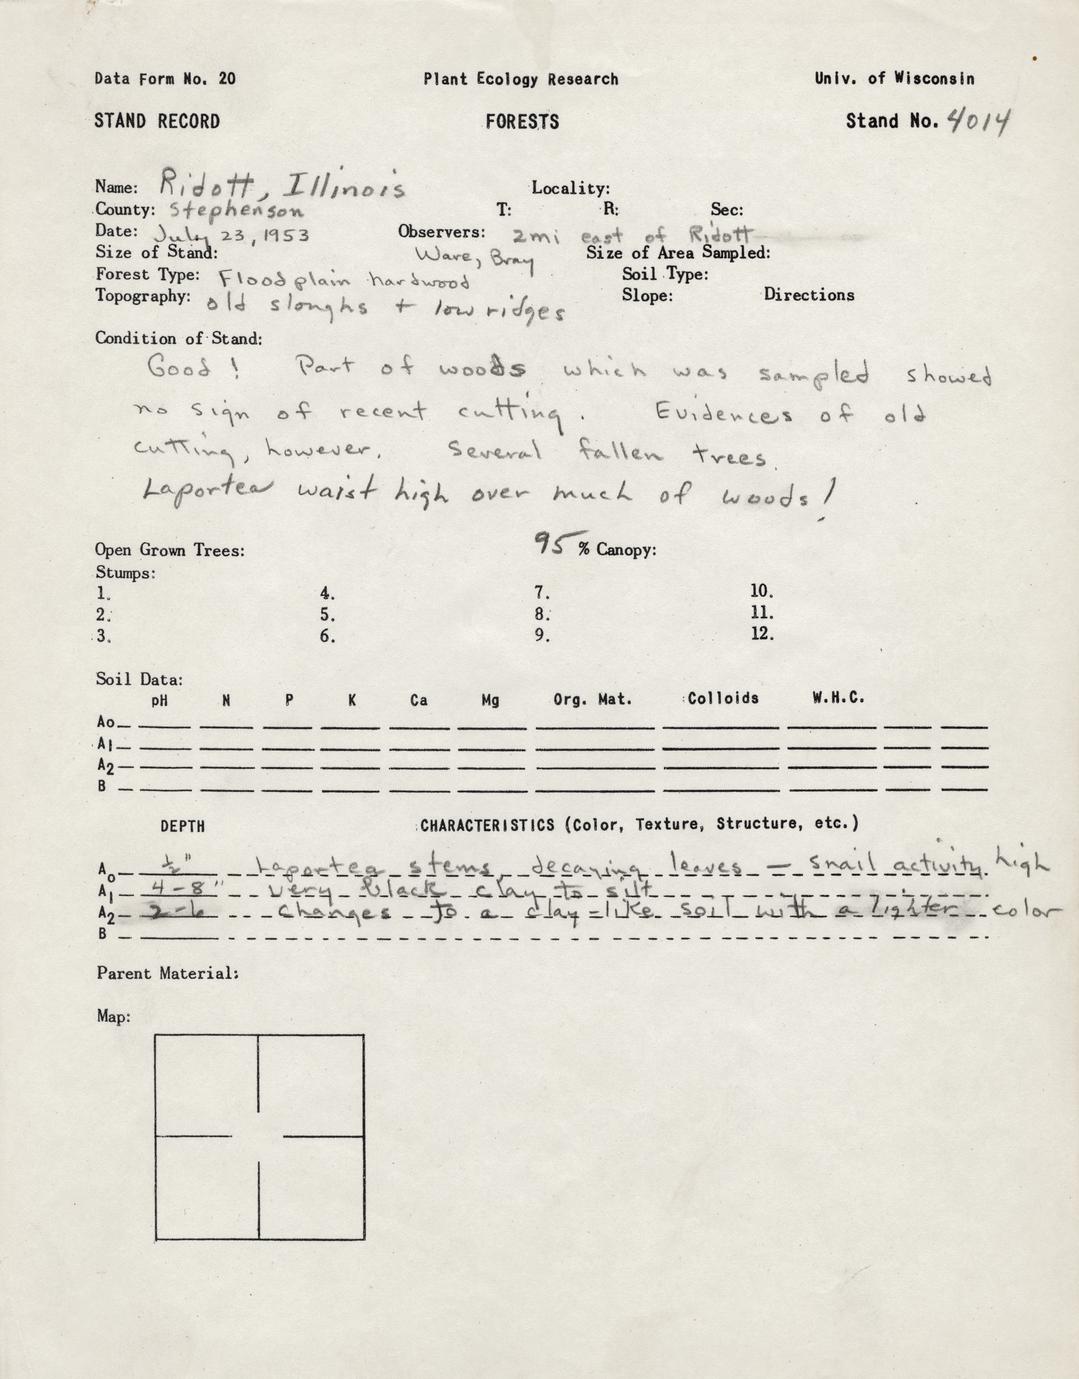 Data Form No. 20 Plant Ecology Research Univ. of Wisconsin
STAND RECORD FORESTS Stand No. 4014
Name: Ridott, Illinois Locality:
County: Stephenson T: R: Sec:
Date: July 23, 1953 Observers: 2mi east of Ridott
Size of Stand: Ware, Bray Size of Area Sampled:
Forest Type: Floodplain hardwood Soil Type:
Topography: old sloughs + low ridges Slope: Directions
Condition of Stand:
Good! Part of woods which was sampled showed
no sign of recent cutting. Evidences of old
cutting, however. Several fallen trees.
Laportea waist high over much of woods!
Open Grown Trees: 95 % Canopy:
Stumps:
1. 4. 7. 10.
2. 5. 8. 11.
3. 6. 9. 12.
Soil Data:
pH N P K Ca Mg Org. Mat. Colloids W.H.C.
Ao
A1
A2
B
DEPTH CHARACTERISTICS (Color, Texture, Structure, etc.)
Ao ½" Laportea stems, decaying leaves — snail activity high
A1 4-8" very black clay to silt
A2 2-6 changes to a clay-like soil with a lighter color
B
Parent Material:
Map: